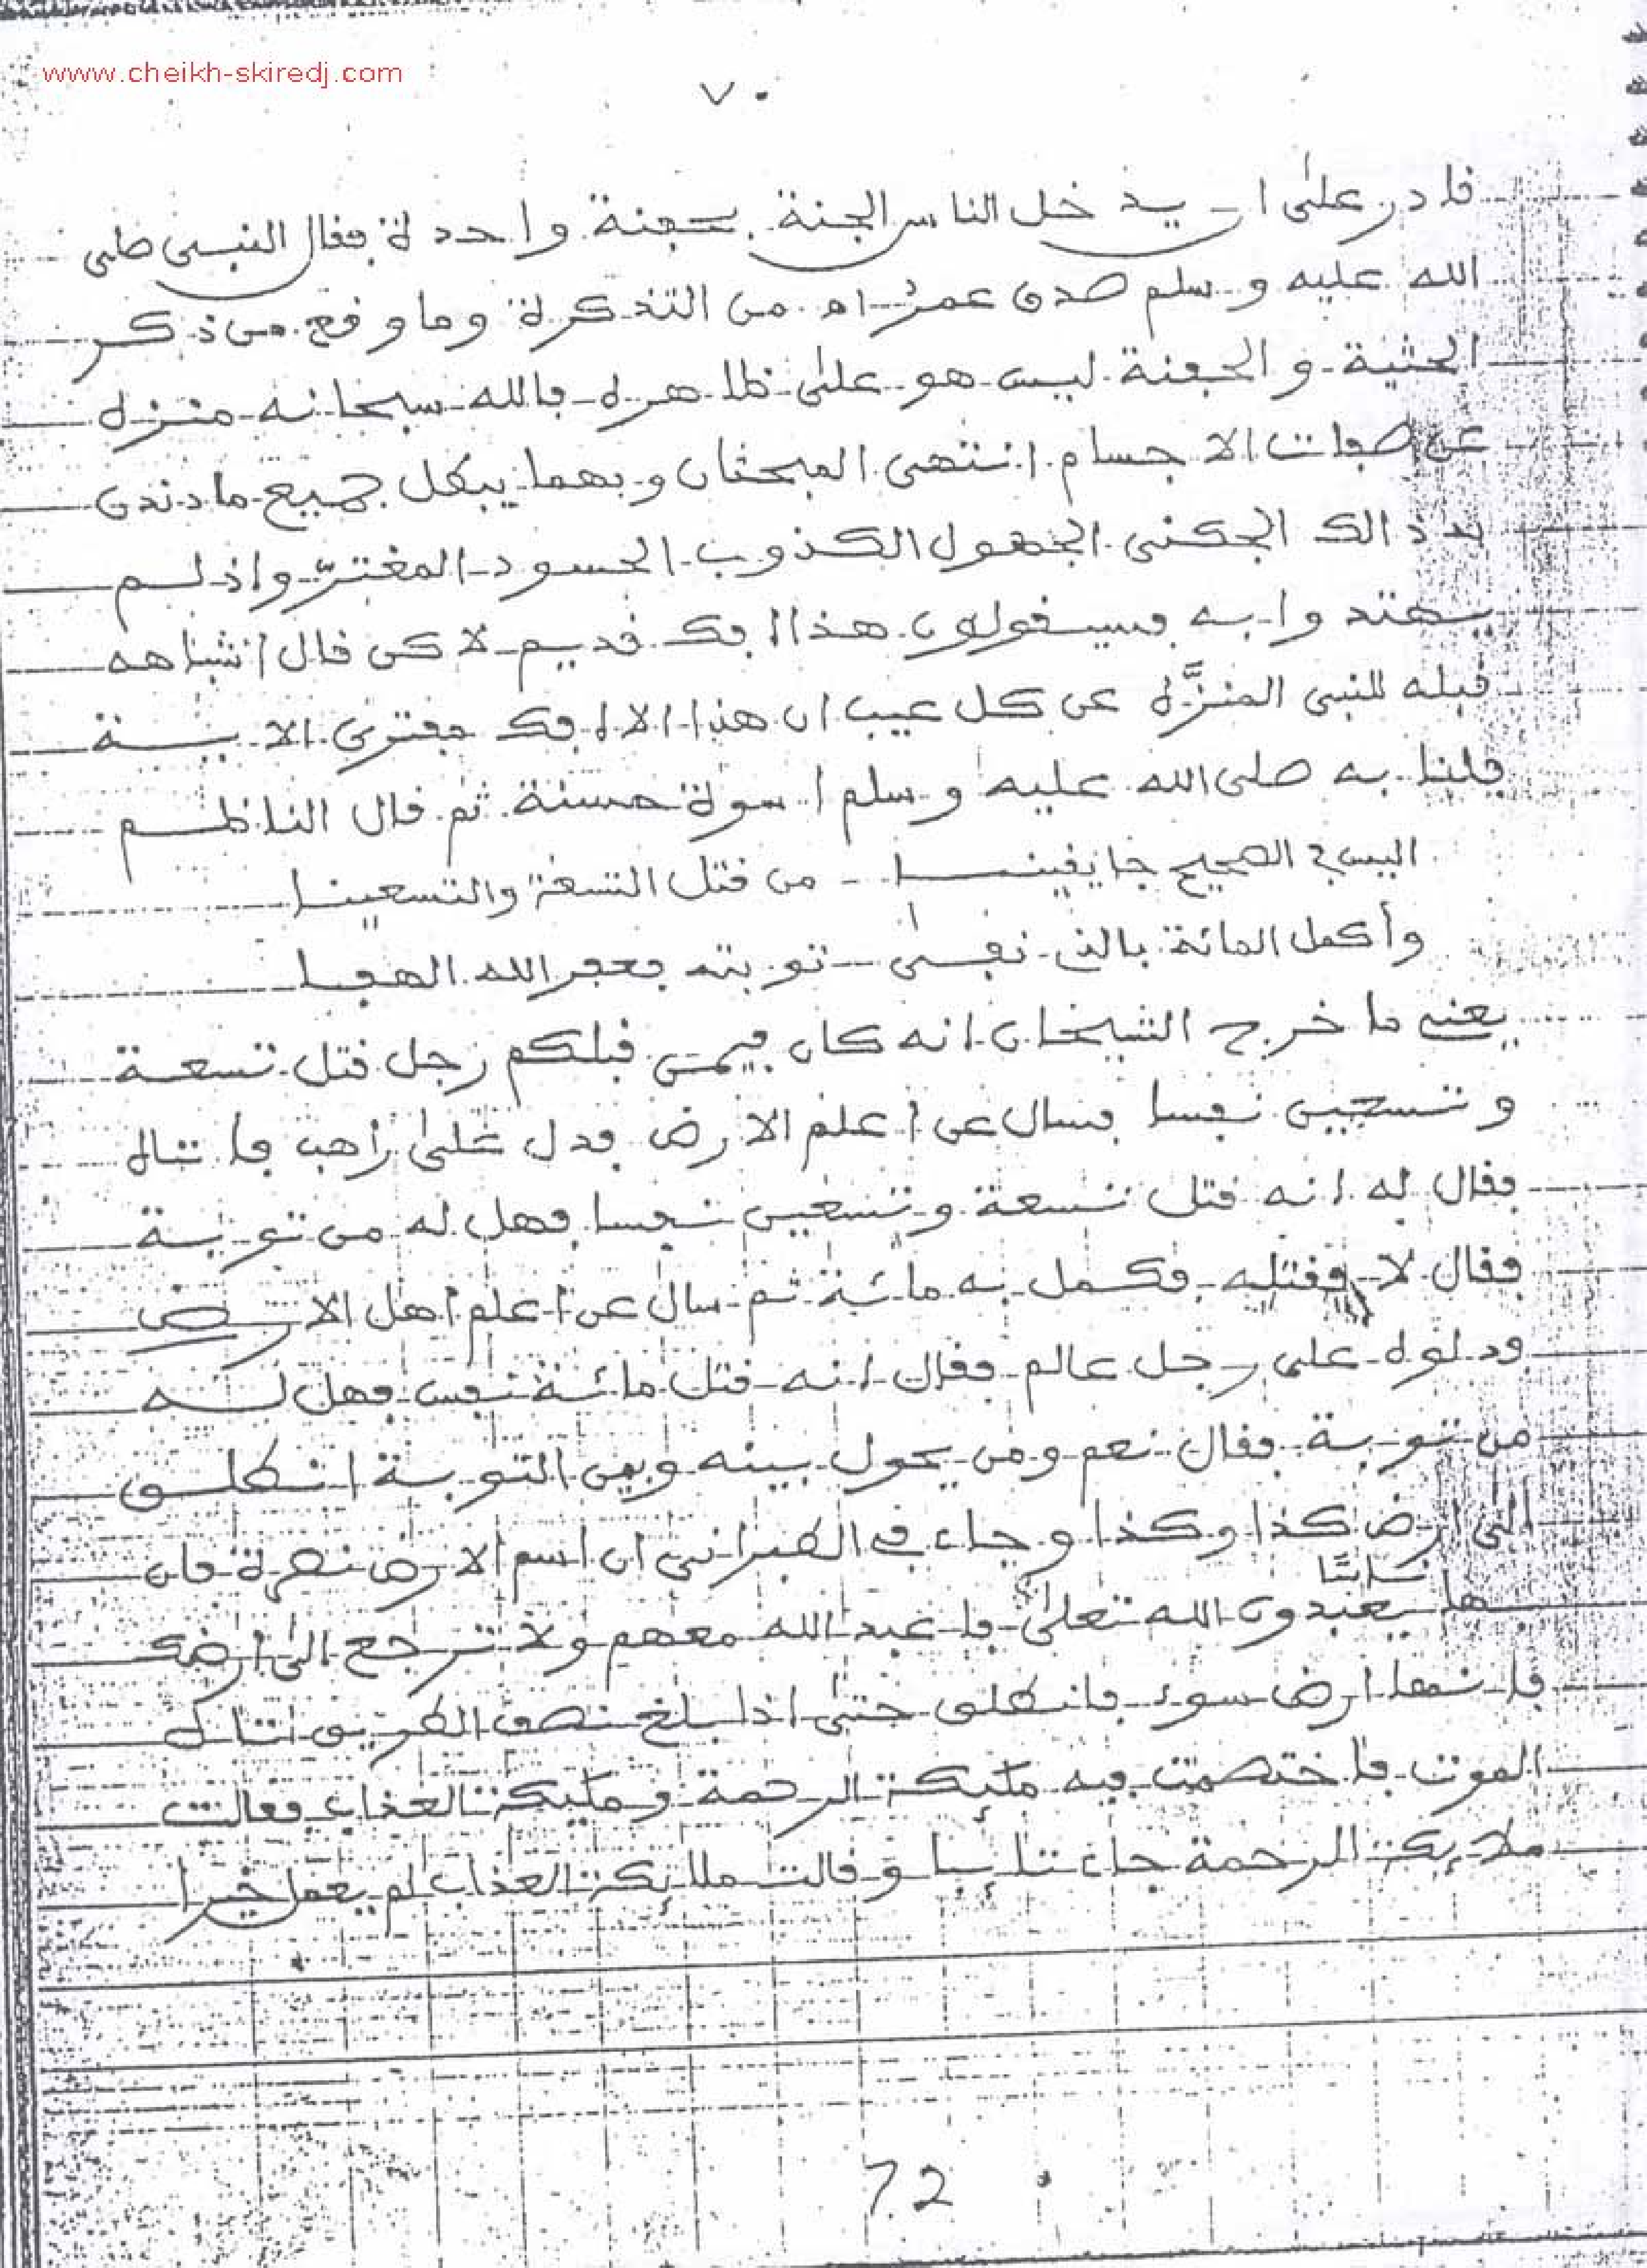 www.cheikh-skiredj.com
٧٠
قادر على ان يدخل الناس الجنة بحفنة واحدة فقال النبي صلى
الله عليه وسلم صدق عمر اه من التذكرة وما وقع من ذكر
الحثية والحفنة ليس هو على ظاهره فالله سبحانه منزه
عن صفات الاجسام انتهى المبحثان وبهما يبطل جميع ما دندن
به ذالك الجكني الجهول الكذوب الحسود المغتر واذ لم
يهتدوا به فسيقولون هذا افك قديم لاكن قال اشباهه
قبله للنبي المنزَّه عن كل عيب ان هذا الا افك مفترى الاية
فلنا به صلى الله عليه وسلم اسوة حسنة ثم قال الناظم
اليس في الصحيح جا يقينا من قتل التسعة والتسعينا
وأكمل المائة بالذي نفى توبته فغفر الله الهفا
يعني ما خرج الشيخان انه كان فيمن قبلكم رجل قتل تسعة
وتسعين نفسا فسال عن اعلم الارض فدل على راهب فاتاه
فقال له انه قتل تسعة وتسعين نفسا فهل له من توبة
فقال لا فقتله فكمل به مائة ثم سال عن اعلم اهل الارض
فدلوه على رجل عالم فقال انه قتل مائة نفس فهل له
من توبة فقال نعم ومن يحول بينه وبين التوبة انطلق
الى ارض كذا وكذا وجاء في الطبراني ان اسم الارض نصرة فان
بها اناسًا يعبدون الله تعلى فاعبد الله معهم ولا ترجع الى ارضك
فانها ارض سوء فانطلق حتى اذا بلغ نصف الطريق اتاه
الموت فاختصمت فيه مليكة الرحمة ومليكة العذاب فقالت
ملائكة الرحمة جاء تائبا وقالت ملائكة العذاب لم يعمل خيرا
72